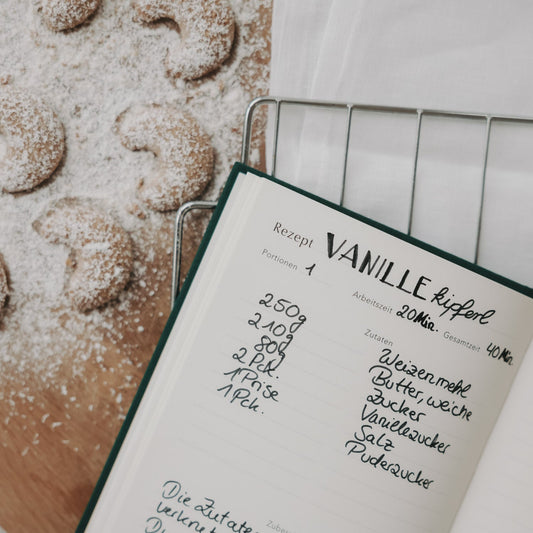 Rezept VANILLE kipferl
Portionen 1 Arbeitszeit 20Min. Gesamtzeit 40Min
Zutaten
250g Weizenmehl
210g Butter, weiche
80g Zucker
2 Pck. Vanillezucker
1 Prise Salz
1 Pck. Puderzucker
Die Zutaten